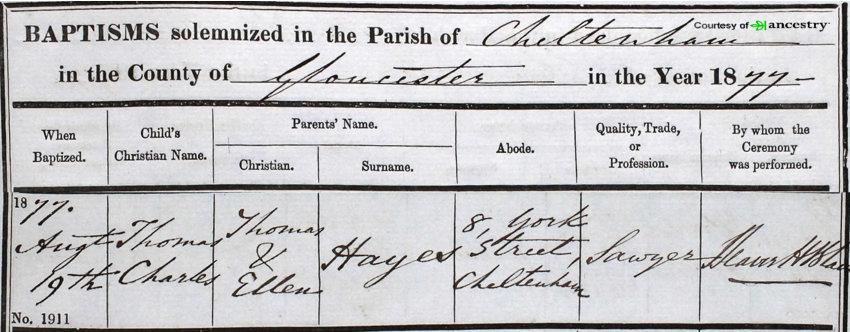 Courtesy of ancestry
BAPTISMS solemnized in the Parish of Cheltenham
in the County of Gloucester in the Year 1877
When Baptized.
Child's Christian Name.
Parents' Name.
Christian.
Surname.
Abode.
Quality, Trade, or Profession.
By whom the Ceremony was performed.
1877.
Augt
19th
Thomas
Charles
Thomas
&
Ellen
Hayes
8, York
Street,
Cheltenham
Sawyer
No. 1911